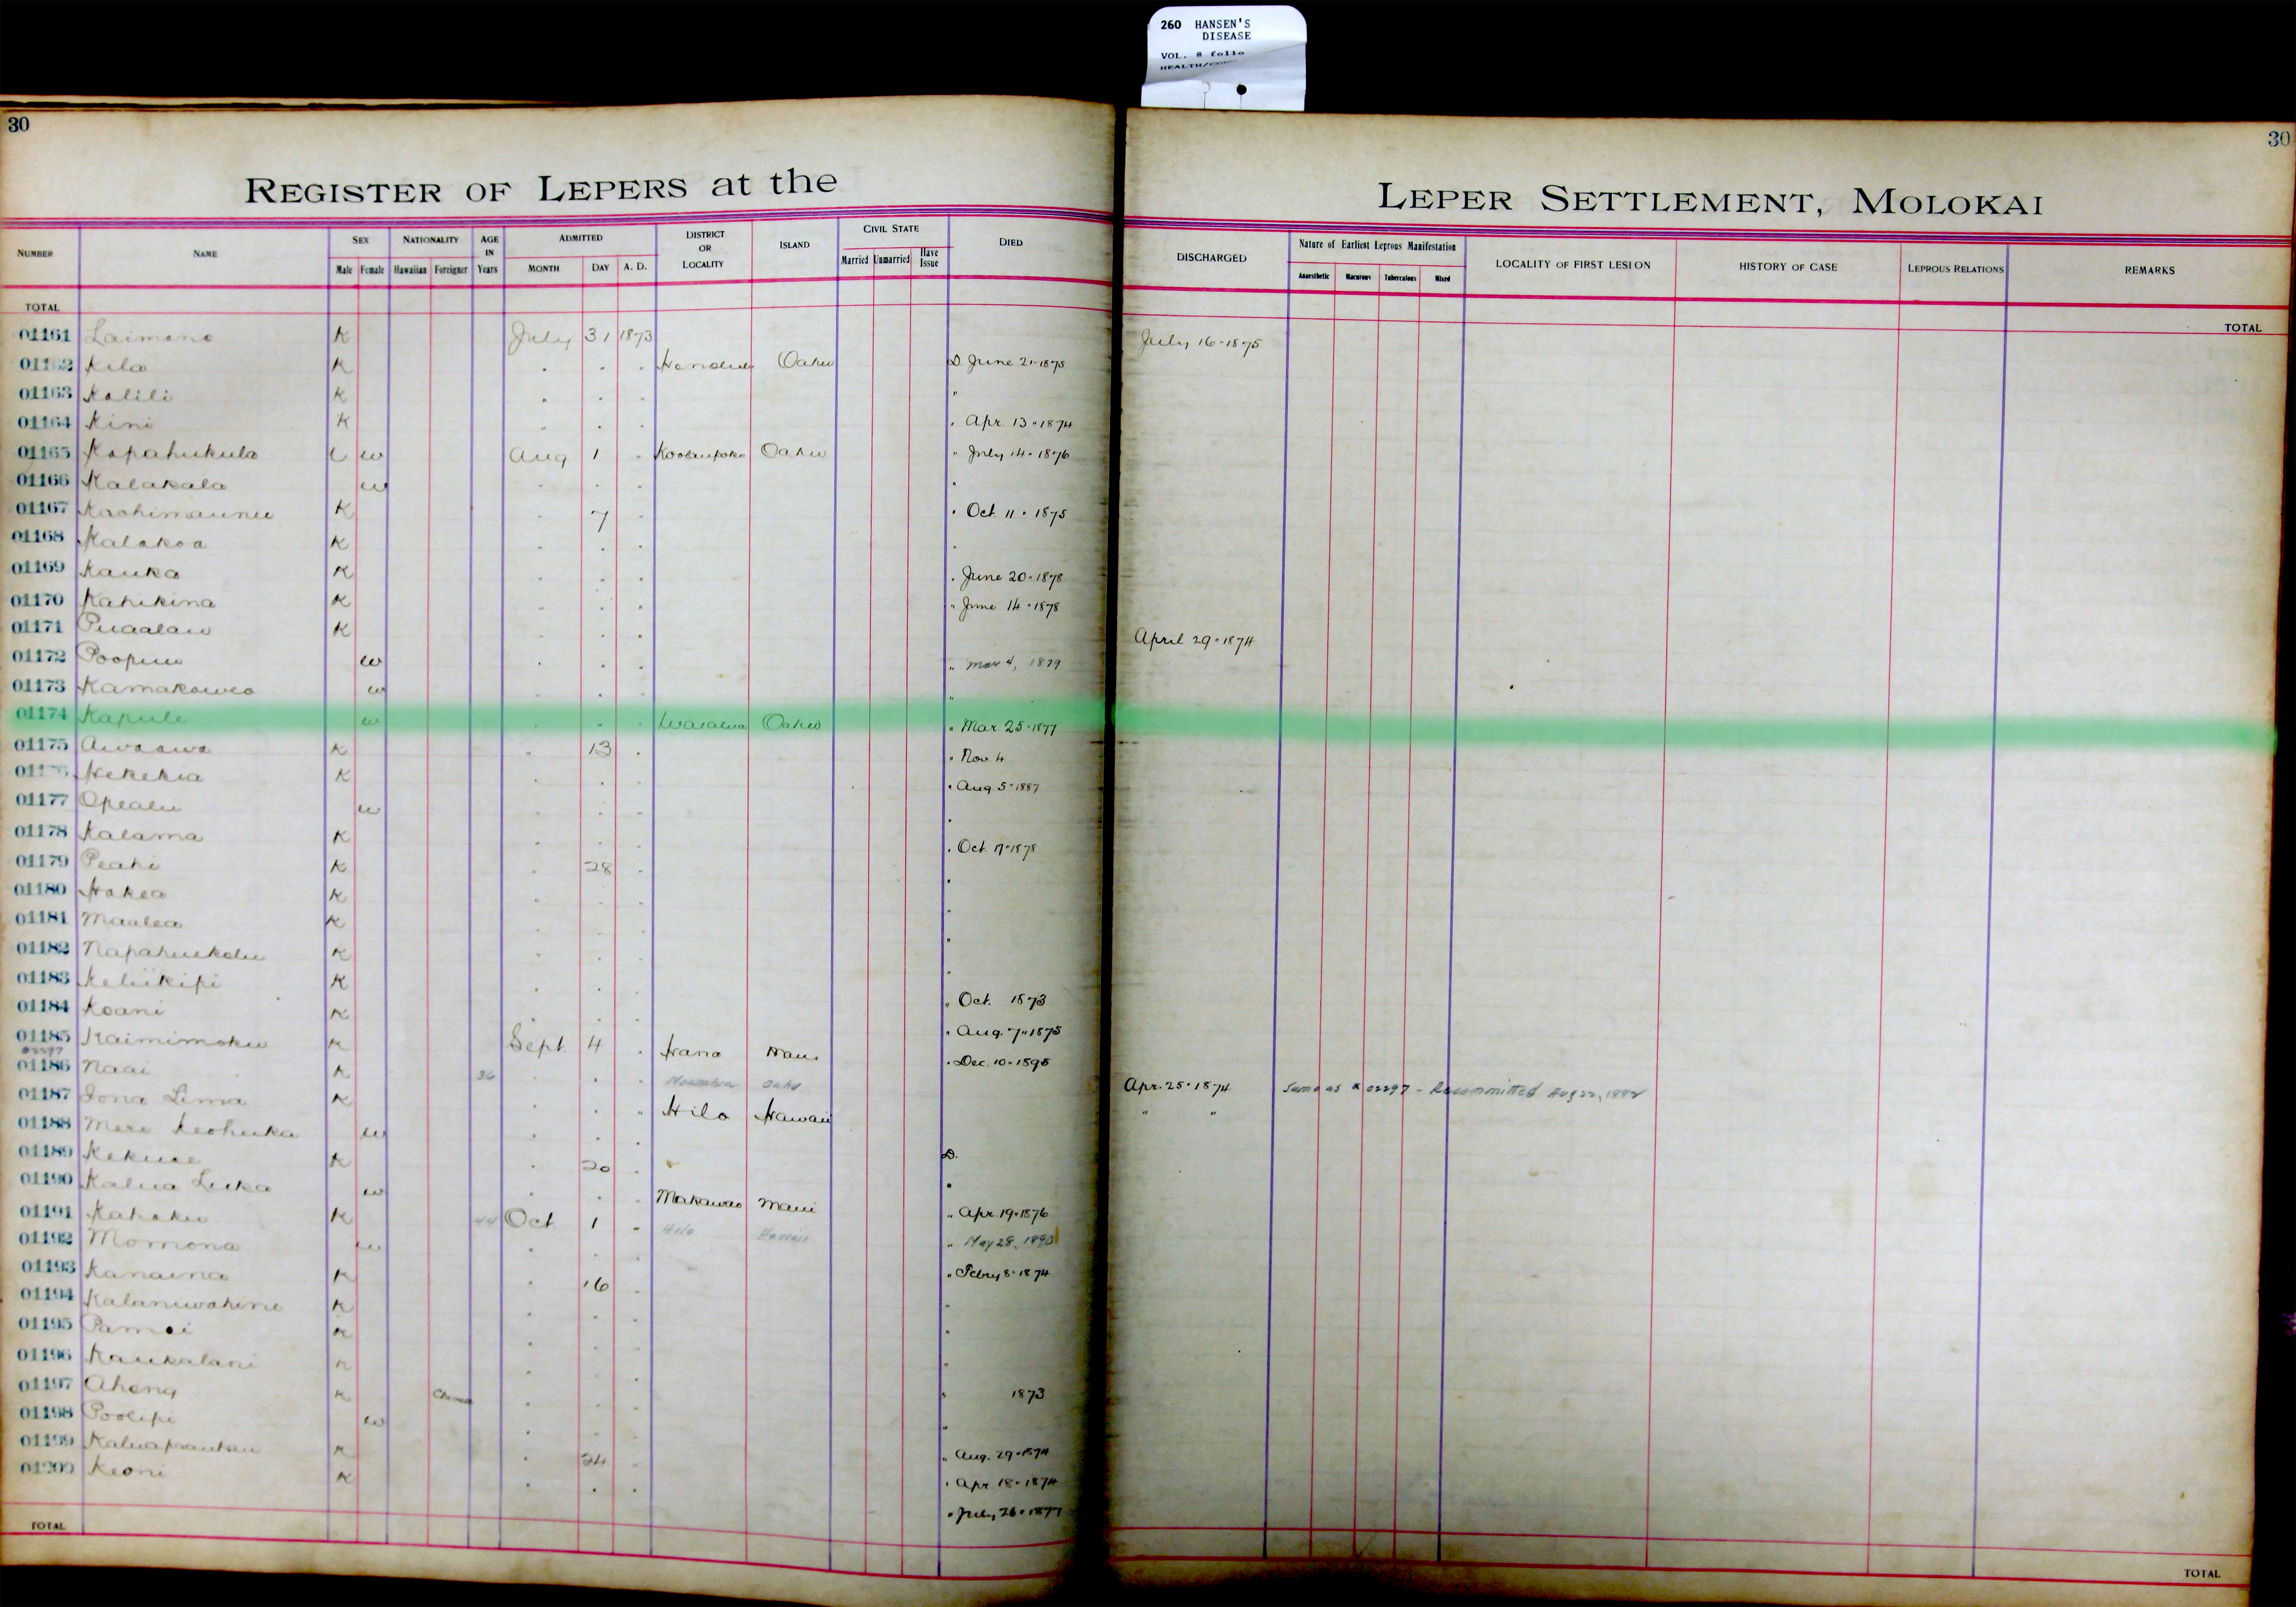 260 HANSEN'S
DISEASE
VOL. 8 folio
30
30
REGISTER OF LEPERS at the
LEPER SETTLEMENT, MOLOKAI
NUMBER NAME SEX Male Female NATIONALITY Hawaiian Foreigner AGE IN Years ADMITTED MONTH DAY A. D. DISTRICT OR LOCALITY ISLAND CIVIL STATE Married Unmarried Have Issue DIED
DISCHARGED Nature of Earliest Leprous Manifestation Anaesthetic Macurous Tuberculous Mixed LOCALITY OF FIRST LESION HISTORY OF CASE LEPROUS RELATIONS REMARKS
TOTAL
TOTAL
01161 Laimana K July 31 1873 July 16-1875
01162 Kila K " " " Honolulu Oahu D. June 21-1875
01163 Kalili K " " " "
01164 Kini K " " " " Apr. 13-1874
01165 Kapahukula w Aug 1 " Koolaupoko Oahu " July 14-1876
01166 Kalakala w " " " "
01167 K " 7 " " Oct. 11-1875
01168 Kalakoa K " " " "
01169 Kauka K " " " " June 20-1878
01170 Kahikina K " " " " June 14-1878
01171 Puaalau K " " " April 29-1874
01172 w " " " " Mar 4, 1879
01173 w " " " "
01174 Kapule w " " " Waialua Oahu " Mar. 25-1877
01175 Awaawa K " 13 " " Nov. 4
Kekekia K " " " " Aug 5-1887
01177 Opealu w " " " "
01178 Kalama K " " " " Oct. 17-1878
01179 Peahi K " 28 " "
01180 Hakea K " " " "
01181 Maalea K " " " "
01182 Napahuekolu K " " " "
01183 Keliikipi K " " " " Oct. 1873
01184 Koani K " " " " Aug. 7-1875
01185 Kaimimoku K Sept. 4 " Hana Maui " Dec. 10-1895
01186 Naai K 36 " " " Oahu Apr. 25-1874 Same as # 02297 - Recommitted Aug 22, 1882
01187 Iona Lima K " " " Hilo Hawaii " "
01188 Mere Keohuka w " " "
01189 Kekuae K " 20 " D.
01190 Kalua Luka w " " " Makawao Maui "
01191 Kahaku K 44 Oct 1 " Hilo Hawaii " Apr. 19-1876
01192 Momona w " " " " May 28, 1890
01193 Kanaina K " 16 " " Febry 8-1874
01194 Kalaniwahine K " " " "
01195 K " " " "
01196 Kaukalani K " " " "
01197 Ahong K " " " " 1873
01198 Poolipi w " " " "
01199 K " 24 " " Aug. 29-1874
01200 Keoni K " " " " Apr. 18-1874
" July 26-1877
TOTAL
TOTAL